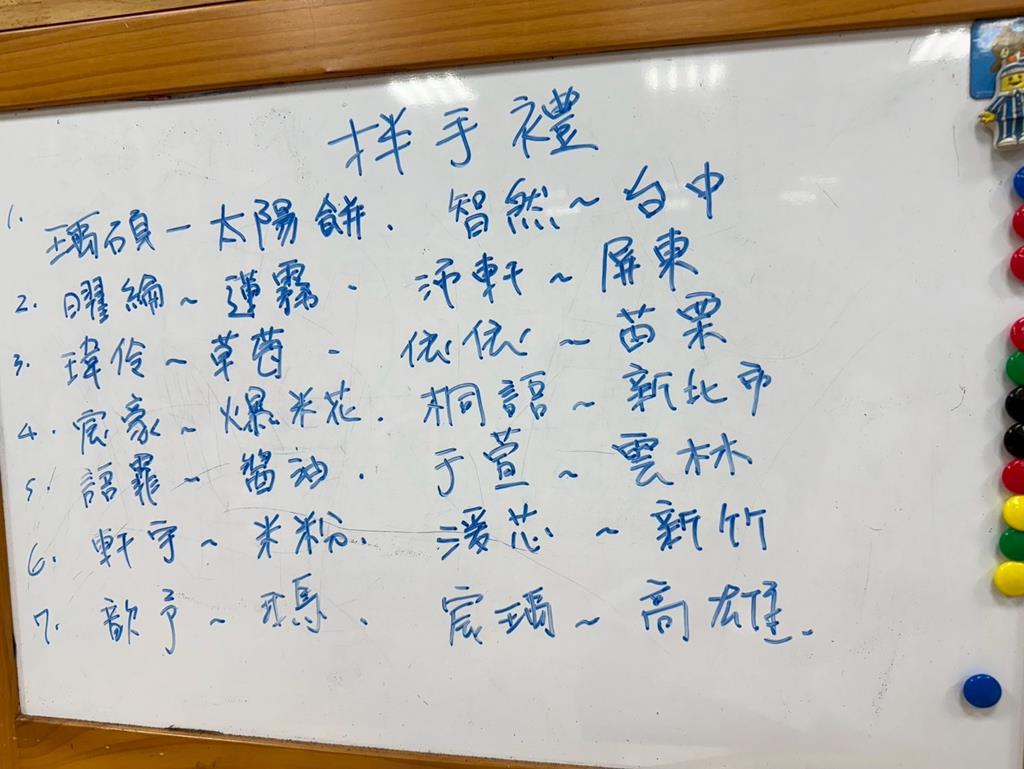 拌手禮
1. 瑀碩－太陽餅. 智然~台中
2. 曜綸~蓮霧. 沛軒~屏東
3. 瑋伶~草莓. 依依~苗栗
4. 宸豪~爆米花. 桐語~新北市
5. 語霏~醬油. 于萱~雲林
6. 軒宇~米粉. 湲芯~新竹
7. 歆予~ 宸瑀~高雄.